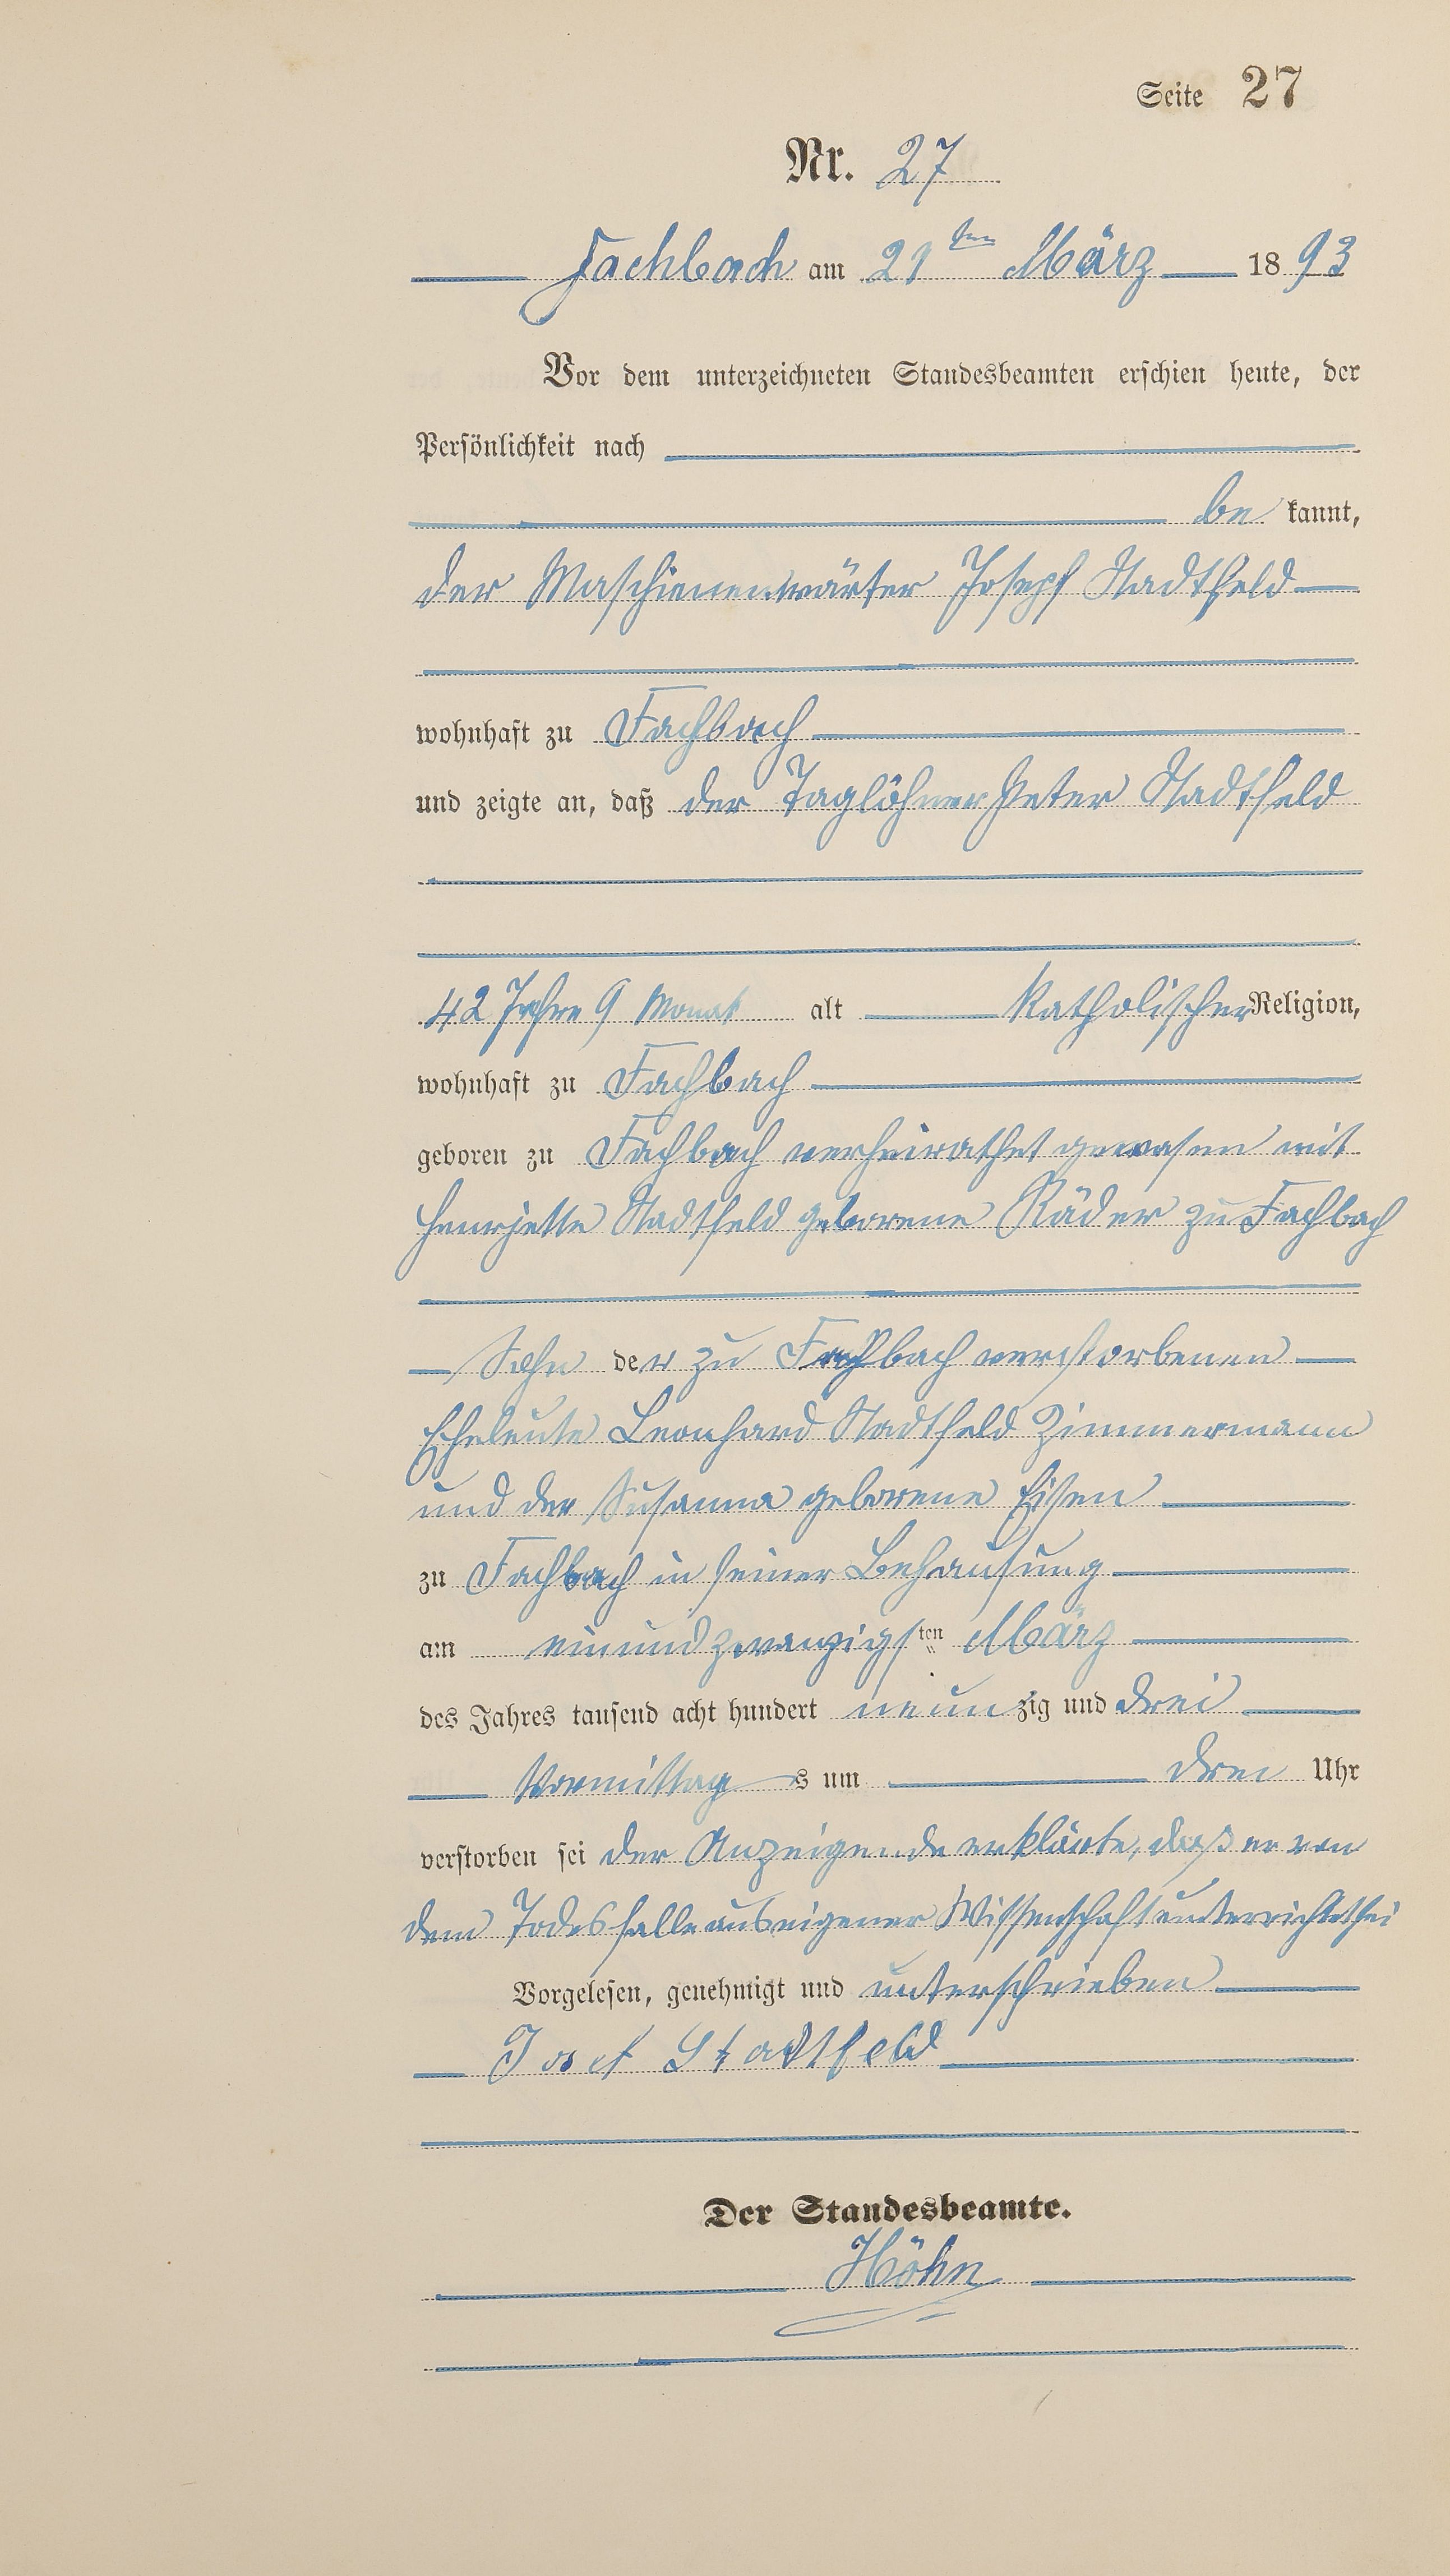 Seite 27
Nr. 27
Fachbach am 21ten März 1893
Vor dem unterzeichneten Standesbeamten erschien heute, der
Persönlichkeit nach
be kannt,
der Maschienenwärter Joseph Stadtfeld
wohnhaft zu Fachbach
und zeigte an, daß der Taglöhner Peter Stadtfeld
42 Jahre 9 Monat alt katholischer Religion,
wohnhaft zu Fachbach
geboren zu Fachbach verheirathet gewesen mit
Henrjette Stadtfeld geborene Räder zu Fachbach
Sohn der zu Fachbach verstorbenen
Eheleute Leonhard Stadtfeld Zimmermann
und der Susanna geborene Eisen
zu Fachbach in seiner Behausung
am einundzwanzigsten März
des Jahres tausend acht hundert neunzig und drei
Vormittags um drei Uhr
verstorben sei der Anzeigende erklärte, daß er von
dem Todesfalle aus eigener Wissenschaft unterrichtet sei
Vorgelesen, genehmigt und unterschrieben
Josef Stadtfeld
Der Standesbeamte.
Höhn